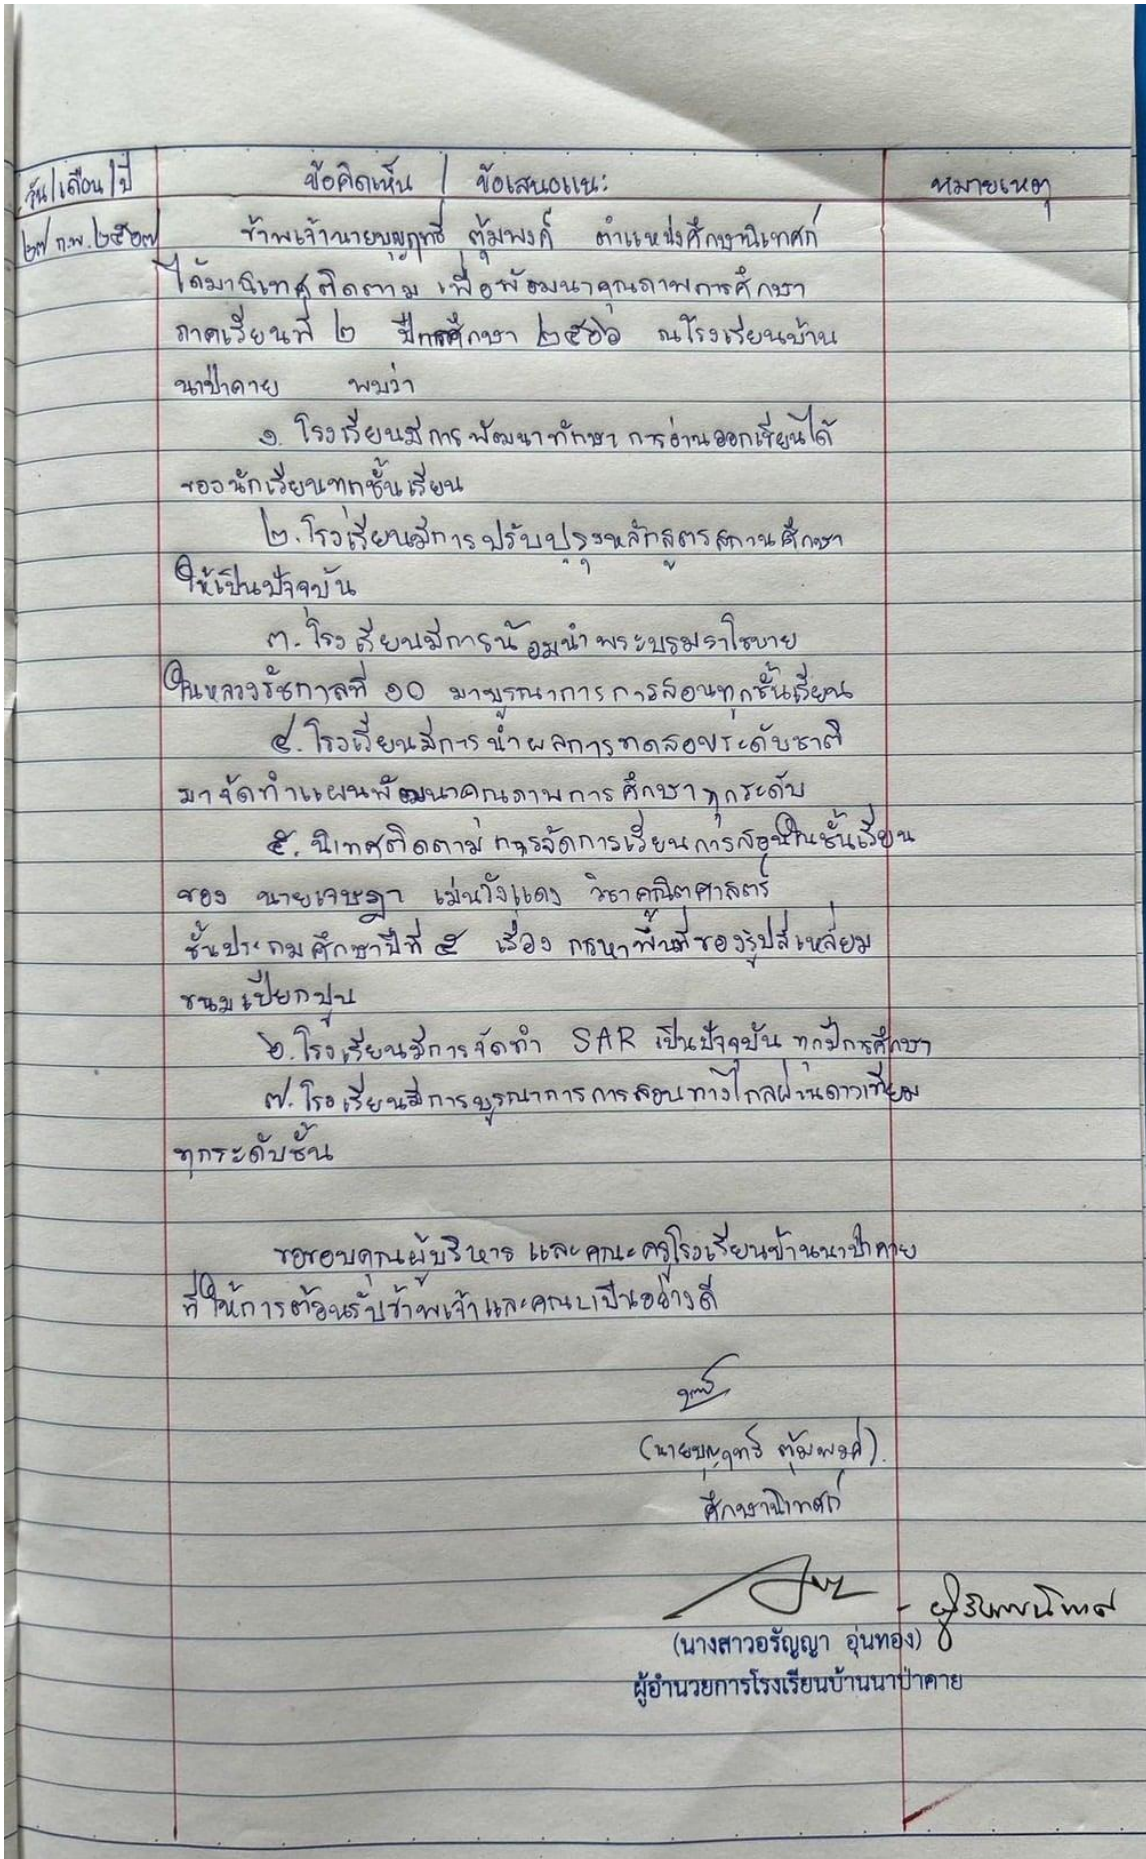 วัน/เดือน/ปี ข้อคิดเห็น / ข้อเสนอแนะ หมายเหตุ
๒๗ ก.พ. ๒๕๖๗ ข้าพเจ้านายบุญฤทธิ์ ตุ้มพงค์ ตำแหน่งศึกษานิเทศก์
ได้มานิเทศติดตาม เพื่อพัฒนาคุณภาพการศึกษา
ภาคเรียนที่ ๒ ปีการศึกษา ๒๕๖๖ ณโรงเรียนบ้าน
นาป่าคาย พบว่า
๑. โรงเรียนมีการพัฒนาทักษะ การอ่านออกเขียนได้
ของนักเรียนทุกชั้นเรียน
๒. โรงเรียนมีการปรับปรุงหลักสูตรสถานศึกษา
ให้เป็นปัจจุบัน
๓. โรงเรียนมีการน้อมนำพระบรมราโชบาย
ในหลวงรัชกาลที่ ๑๐ มาบูรณาการการสอนทุกชั้นเรียน
๔. โรงเรียนมีการนำผลการทดสอบระดับชาติ
มาจัดทำแผนพัฒนาคุณภาพการศึกษาทุกระดับ
๕. นิเทศติดตาม การจัดการเรียนการสอนในชั้นเรียน
ของ นายเจษฎา เม่นวังแดง วิชาคณิตศาสตร์
ชั้นประถมศึกษาปีที่ ๕ เรื่อง การหาพื้นที่ของรูปสี่เหลี่ยม
ขนมเปียกปูน
๖. โรงเรียนมีการจัดทำ SAR เป็นปัจจุบัน ทุกปีการศึกษา
๗. โรงเรียนมีการบูรณาการการสอนทางไกลผ่านดาวเทียม
ทุกระดับชั้น
ขอขอบคุณผู้บริหาร และคณะครูโรงเรียนบ้านนาป่าคาย
ที่ให้การต้อนรับข้าพเจ้าและคณะเป็นอย่างดี
(นายบุญฤทธิ์ ตุ้มพงค์)
ศึกษานิเทศก์
- ผู้รับการนิเทศ
(นางสาวอรัญญา อุ่นทอง)
ผู้อำนวยการโรงเรียนบ้านนาป่าคาย